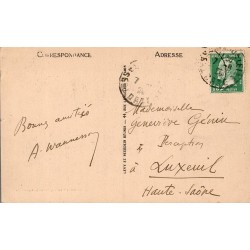 CORRESPONDANCE
ADRESSE
Mademoiselle
Geneviève Génin
Perception
à Luxeuil
Haute-Saône
Bonnes amitiés
A.